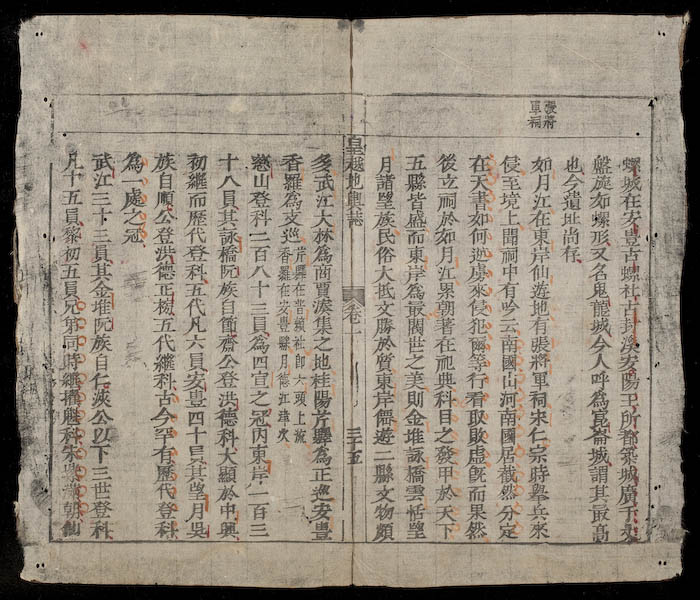 張將
軍祠
螺城在安豊古螺社古封溪安陽王所都築城廣千丈
盤旋如螺形又名鬼龍城今人呼為崑崙城謂其最高
也今遺址尚存
如月江在東岸仙遊地有張將軍祠宋仁宗時舉兵來
侵至境上聞祠中有吟云南國山河南國居截然分定
在天書如何逆虜來侵犯爾等行看取敗虛既而果然
後立祠於如月江果朝著在祀典科目之發甲於天下
五縣皆盛而東岸為最閥世之美則金堆詠橋雲恬望
月諸望族民俗大抵文勝於質東岸僊遊二縣文物頗
皇越地輿誌
卷一
三十五
多武江大林為商賈湊集之地桂陽芹驛為正巡安豊
香羅為支巡芹驛在普賴社即大頭上流
香羅在安豊縣月德江津次
慈山登科二百八十三員為四宣之冠內東岸一百三
十八員其詠橋阮族自節齋公登洪德科大顯於中興
初繼而歷代登科五代凡六員安豊四十員其望月吳
族自順公登洪德正榜五代繼科古今罕有歷代登科
為一處之冠
武江三十三員其金堆阮族自仁浹公以下三世登科
凡十五員黎初五員兄弟同時繼擢魁科朱與蕭朝仙